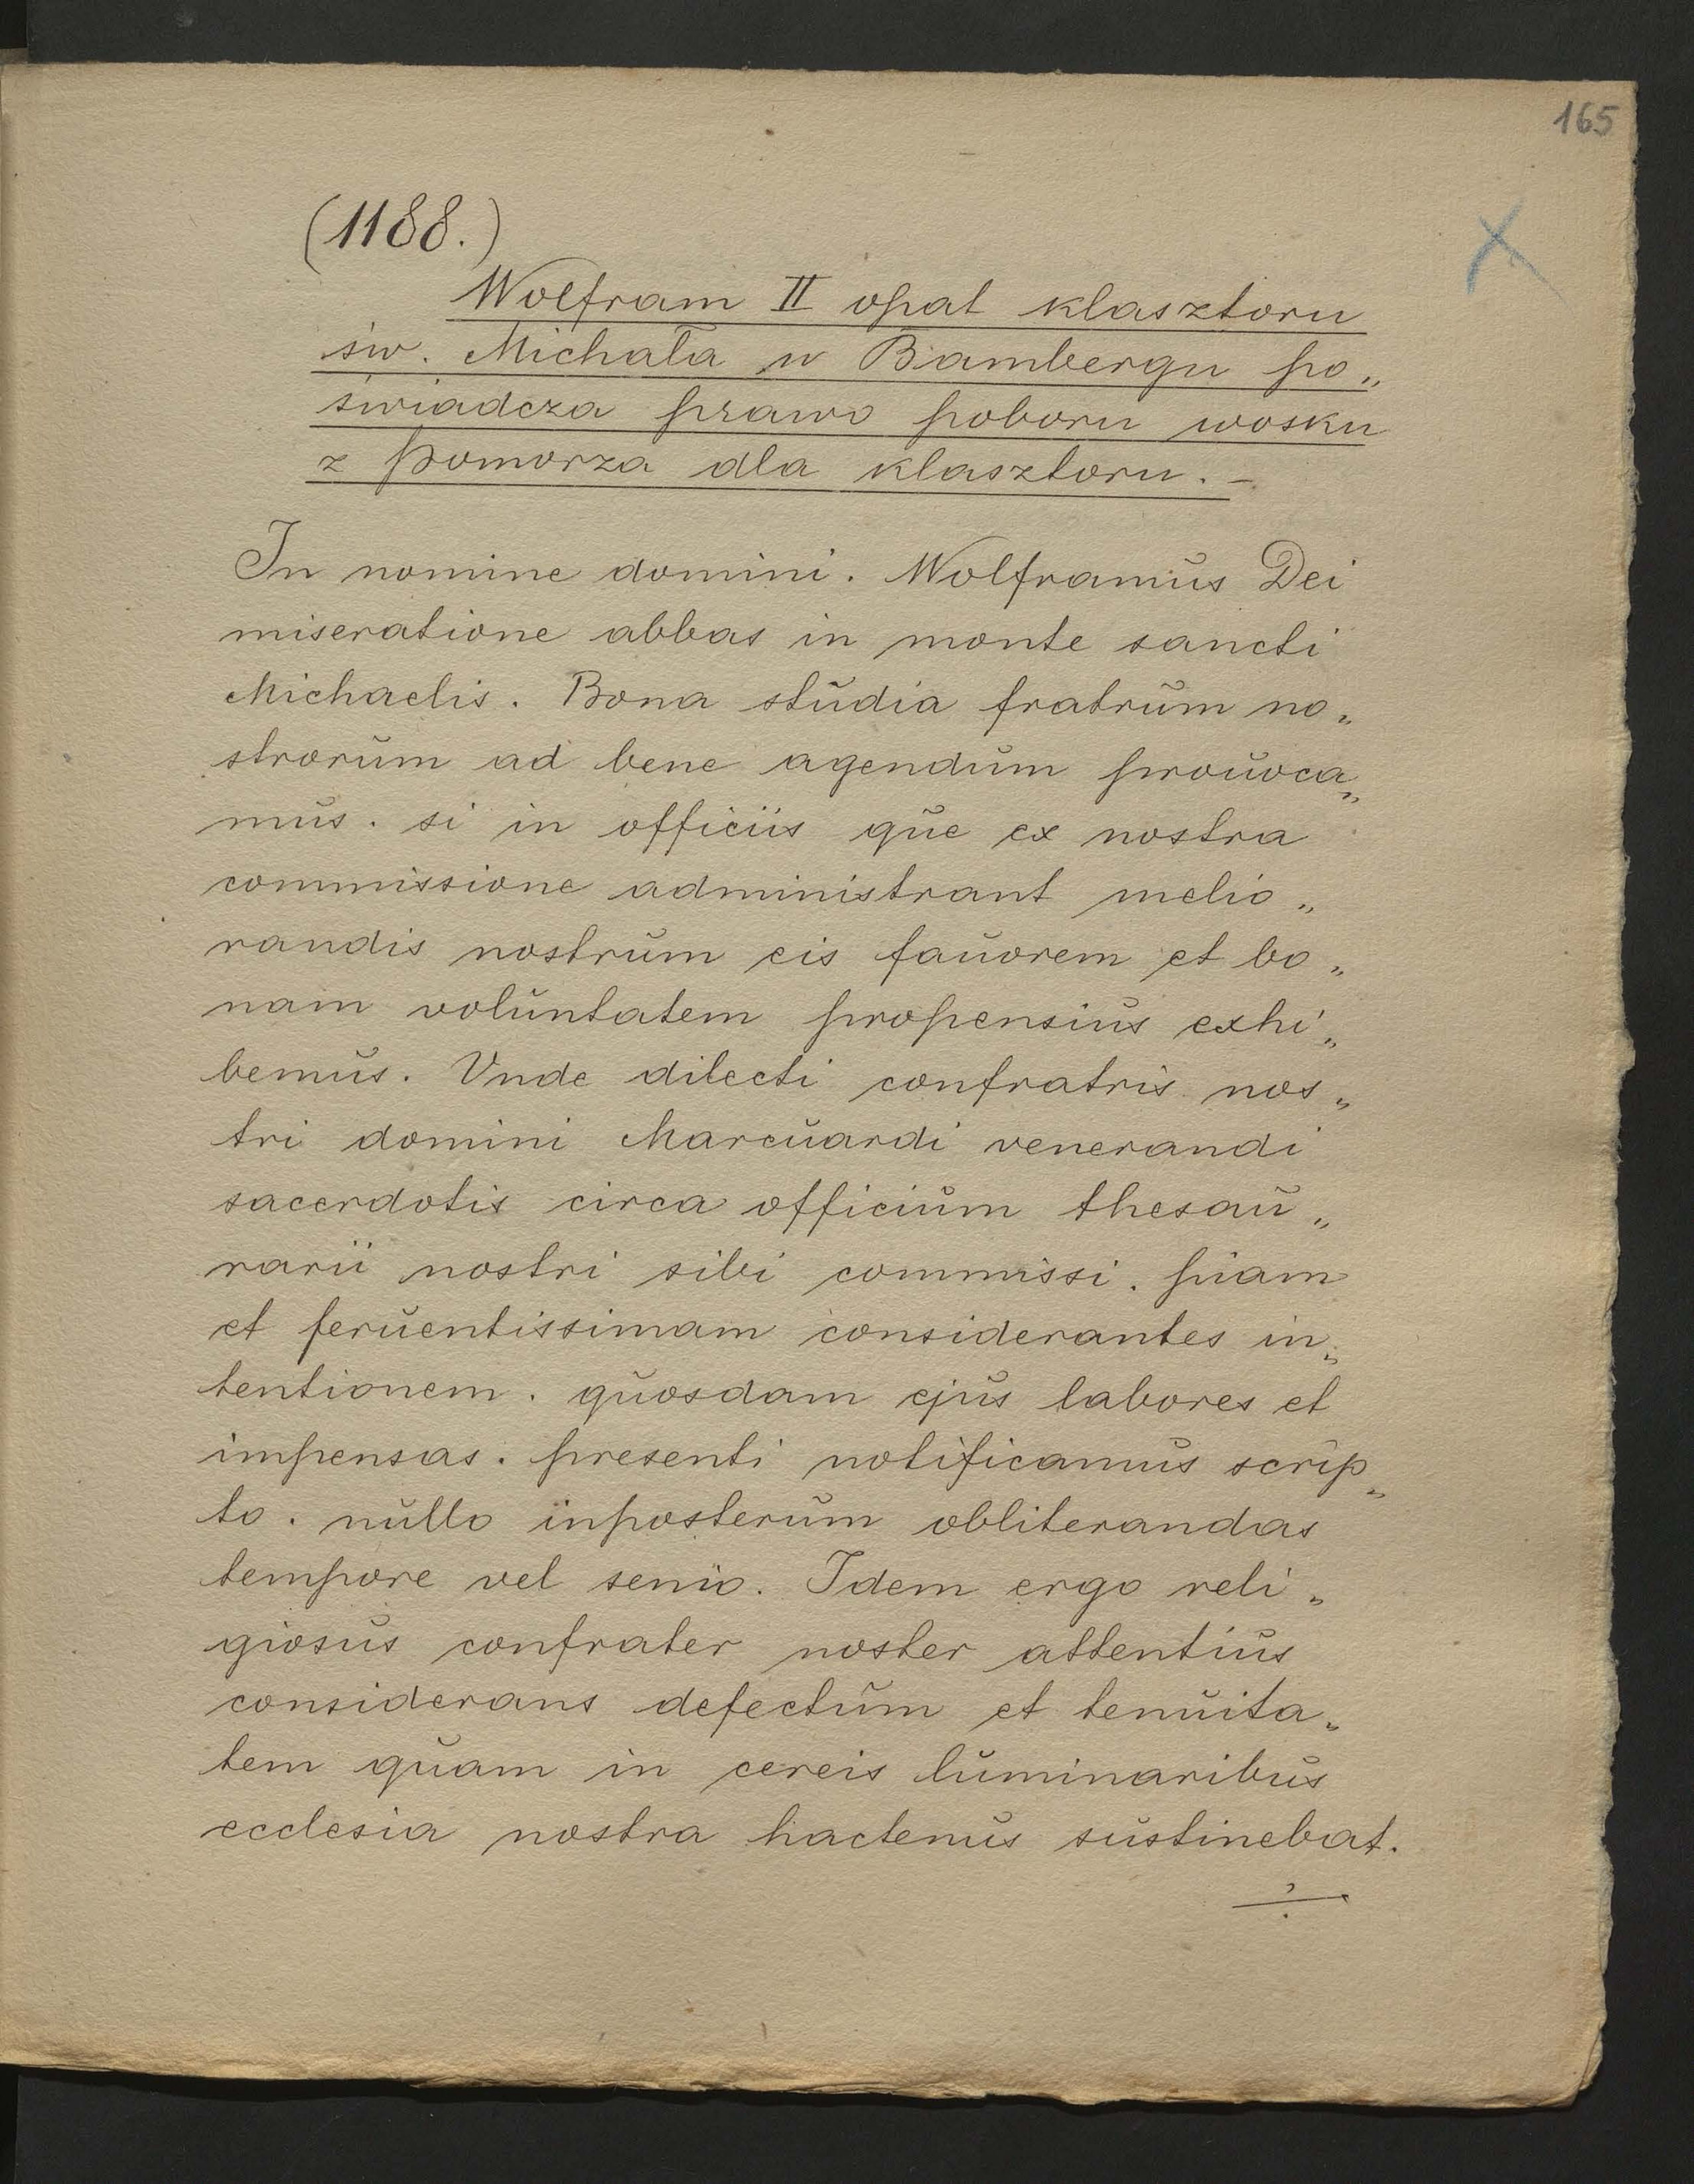 165
(1188.)
Wolfram II opat klasztoru
św. Michała w Bambergu po„
świadcza prawo poboru wosku
z Pomorza dla klasztoru. –
In nomine domini. Wolframus Dei
miseratione abbas in monte sancti
Michaelis. Bona studia fratrum no„
strorum ad bene agendum prouoca„
mus. si in officiis que ex nostra
commissione administrant melio„
randis nostrum eis fauorem et bo„
nam voluntatem propensius exhi„
bemus. Vnde dilecti confratris nos„
tri domini Marcuardi venerandi
sacerdotis circa officium thesau„
rarii nostri sibi commissi. piam
et feruentissimam considerantes in„
tentionem. quosdam ejus labores et
impensas. presenti notificamus scrip„
to. nullo inposterum obliterandas
tempore vel senio. Idem ergo reli„
giosus confrater noster attentius
considerans defectum et tenuita„
tem quam in cereis luminaribus
ecclesia nostra hactenus sustinebat.